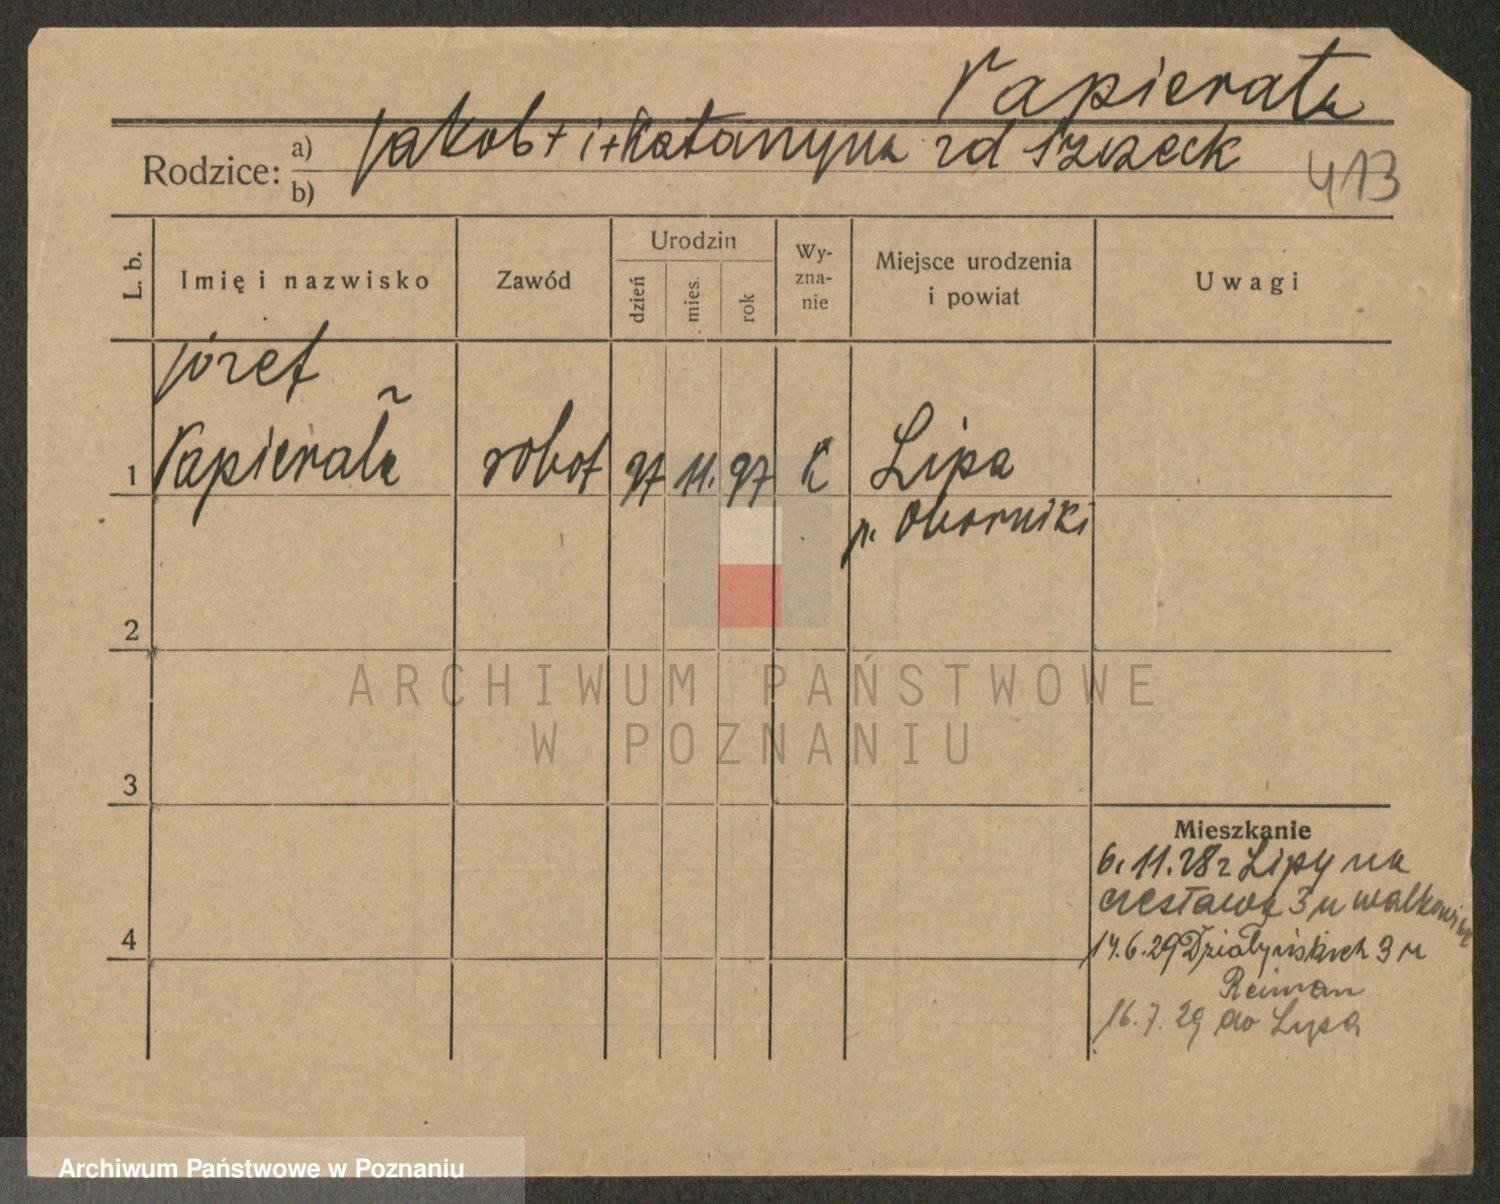 Papierała
Rodzice: a) Jakob + i + Katarzyna zd Szczeck
b)
413
L. b.
Imię i nazwisko
Zawód
Urodzin
dzień
mies.
rok
Wy-
zna-
nie
Miejsce urodzenia
i powiat
Uwagi
Józef
1 Papierała robot 11. 97 K Lipa
p. Oborniki
2
ARCHIWUM PAŃSTWOWE
W POZNANIU
3
Mieszkanie
6. 11. 28 z Lipy na
3 u
4
14.6.29 Działyńskich 3 u
Reiman
16. 7. 29 do Lipa
Archiwum Państwowe w Poznaniu